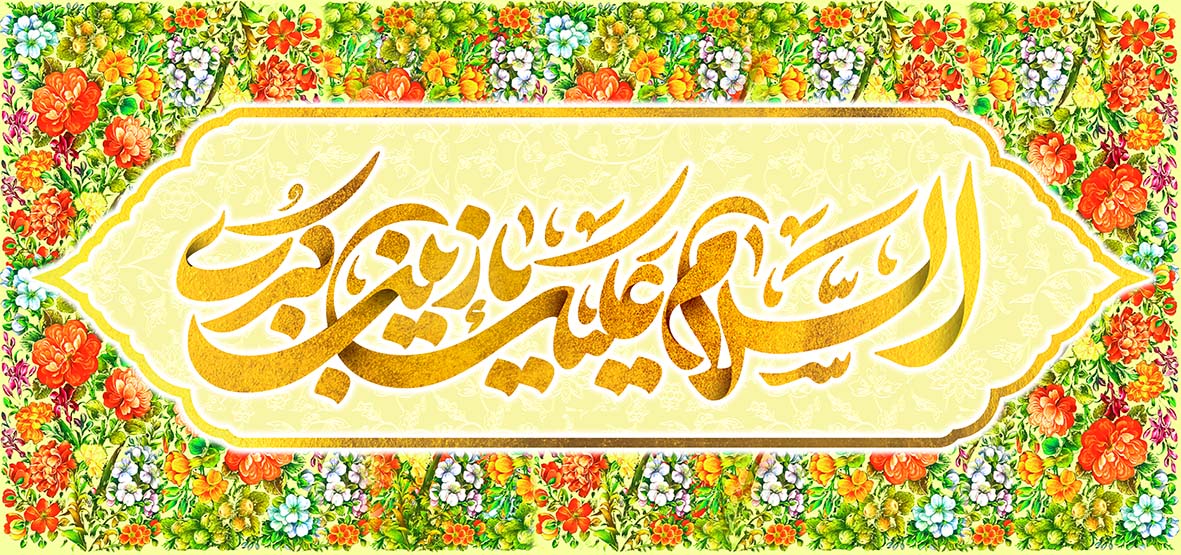 السَّلام علیک یا زینب کبرُی